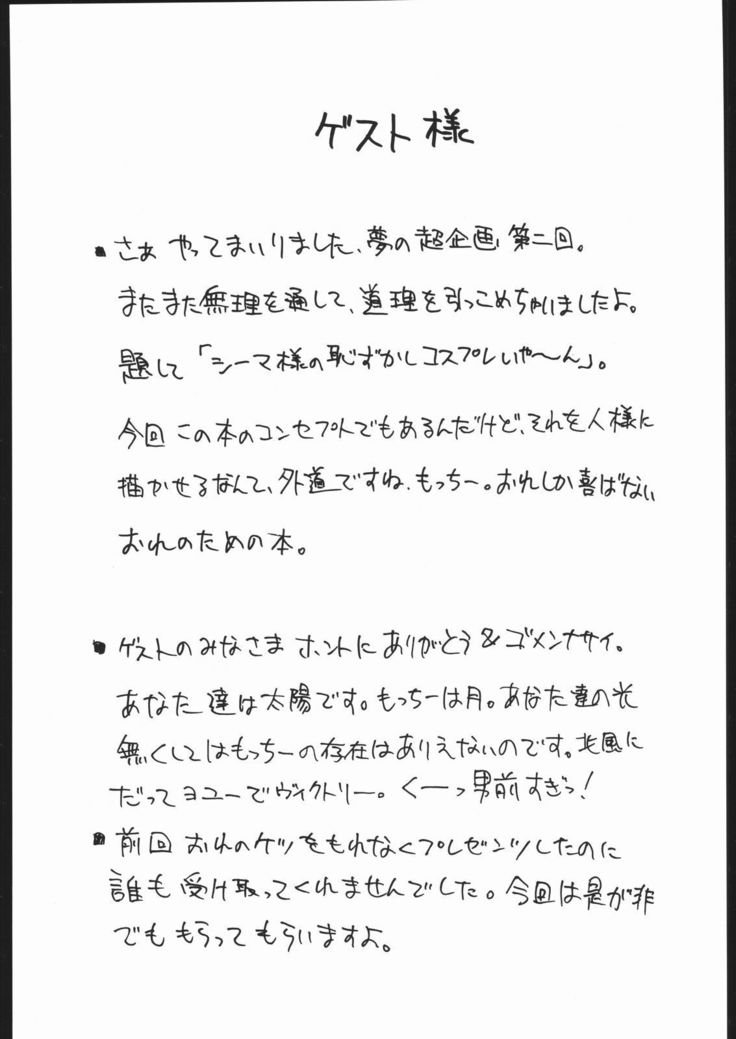 ゲスト様
・さあ やってまいりました、夢の超企画 第二回。
またまた無理を通して、道理を引っこめちゃいましたよ。
題して「シーマ様の恥ずかしコスプレいや〜ん」。
今回 この本のコンセプトでもあるんだけど、それを人様に
描かせるなんて、外道ですね、もっちー。おれしか喜ばない
おれのための本。
・ゲストのみなさま ホントにありがとう&ゴメンナサイ。
あなた達は太陽です。もっちーは月。あなた達の光
無くしてはもっちーの存在はありえないのです。北風に
だってヨユーでヴィクトリー。くーっ男前すぎっ!
・前回 おれのケツをもれなくプレゼンツしたのに
誰も受け取ってくれませんでした。今回は是が非
でも もらって もらいますよ。